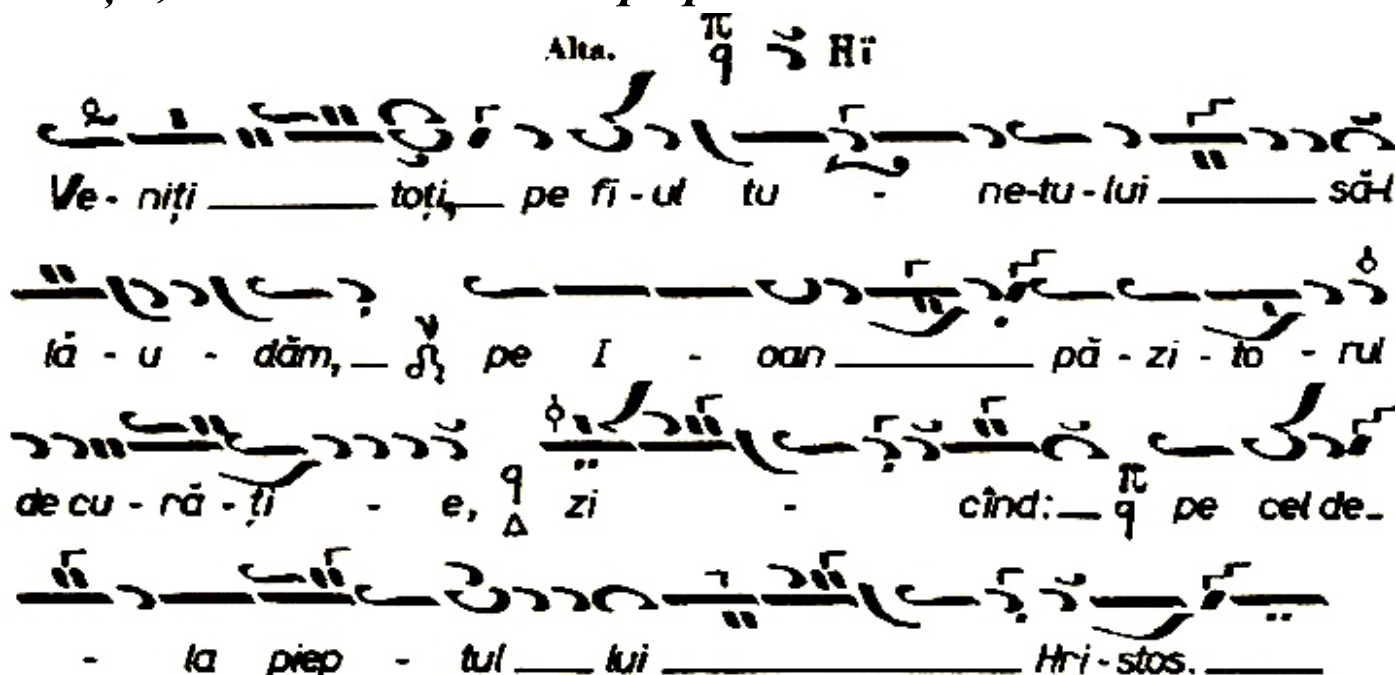 Alta. π q Hï
Ve - niți ____ toți,__ pe fi - ul tu - ne - tu - lui ____ să-l
lă - u - dăm, __ pe I - oan ____ pă - zi - to - rul
de cu - ră - ți - e, q Δ zi - cînd: __ π q pe cel de_
- la piep - tul ___ lui ____ Hri - stos. ____